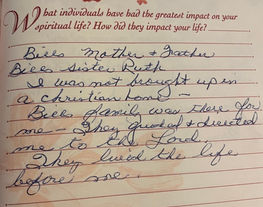 What individuals have had the greatest impact on your
spiritual life? How did they impact your life?
Bill's Mother & Father
Bill's sister Ruth
I was not brought up in
a Christian home –
Bill's family was there for
me – They guided & directed
me to the Lord.
They lived the life
before me.